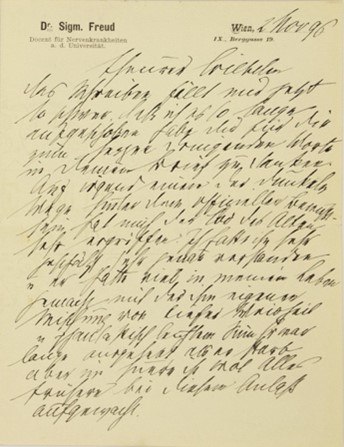 Dr. Sigm. Freud
Docent für Nervenkrankheiten
a. d. Universität.
Wien, 2 Nov 96
IX., Berggasse 19.
Theurer Wilhelm
das Schreiben fällt mir jetzt
so schwer, daß ich es so lange
aufgeschoben habe dir für die
zum Herzen dringenden Worte
in deinem Brief zu danken
Auf irgend einem der dunkeln
Wege hinter dem officiellen Bewußt-
sein hat mich der Tod des Alten
sehr ergriffen ich hatte ihn sehr
geschätzt sehr genau verstanden
u er hatte viel in meinem Leben
gemacht mit der ihm eigenen
Mischung von tiefer Weisheit
u phantastisch leichtem Sinn Er war
lange ausgelebt als er starb
aber im Innern ist wol alles
Frühere bei diesem Anlaß
aufgewacht.